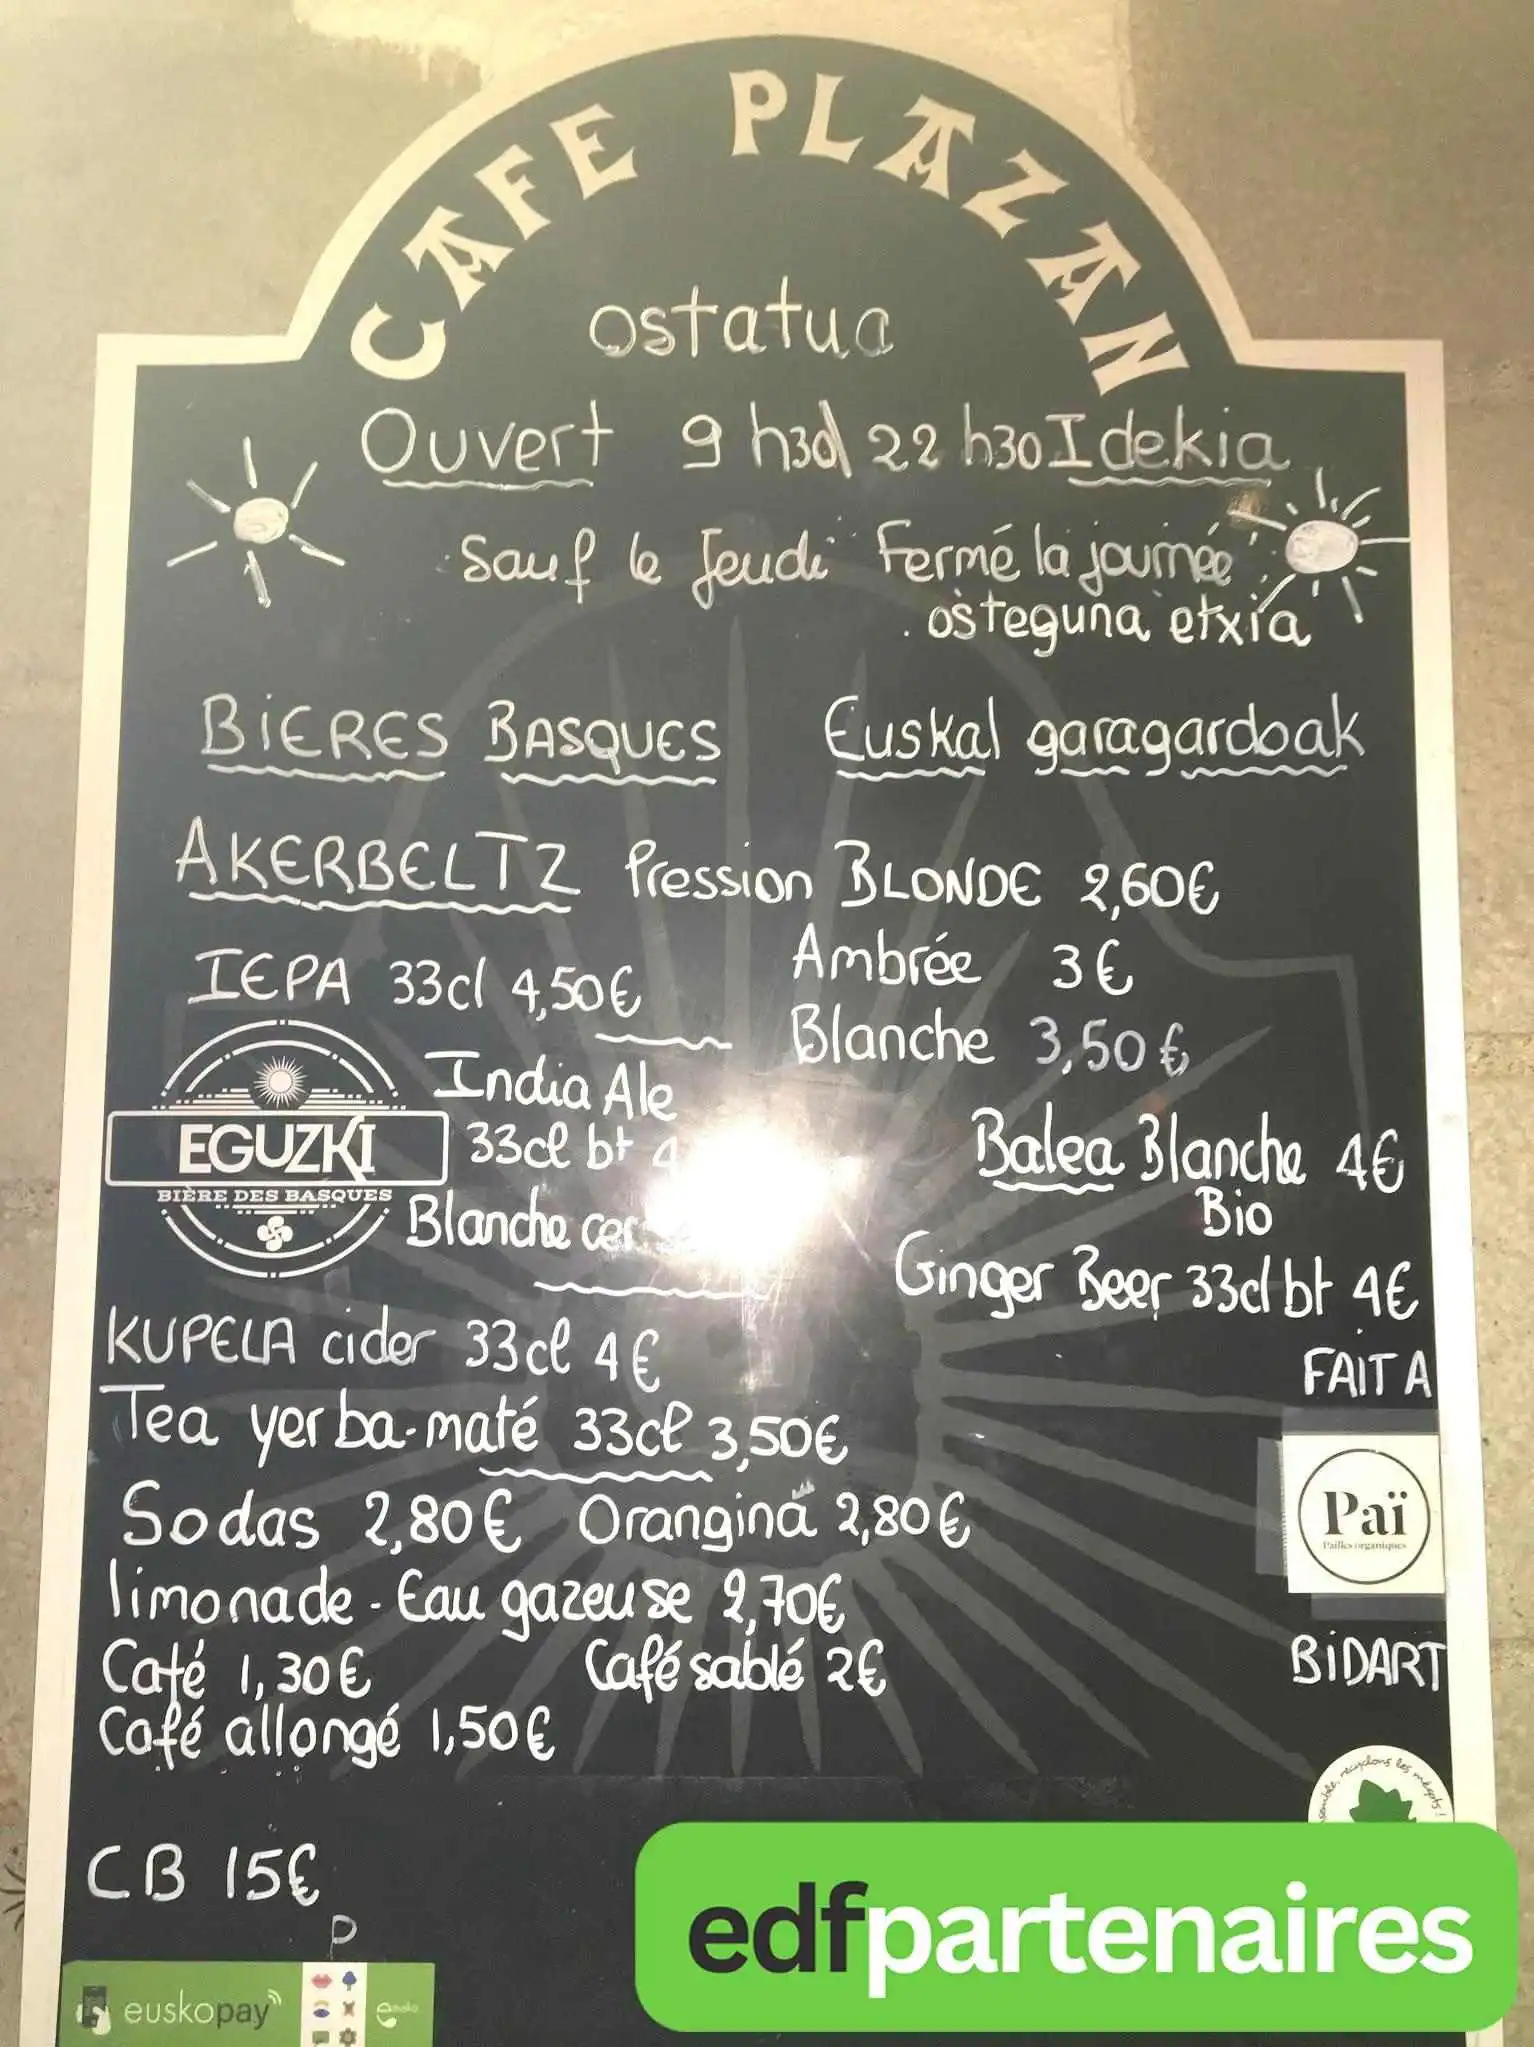 CAFE PLAZAN
ostatua
Ouvert 9 h30 22 h30 Idekia
Sauf le Jeudi Fermé la journée
osteguna etxia
BIERES BASQUES Euskal garagardoak
AKERBELTZ Pression BLONDE 2,60€
IEPA 33cl 4,50€ Ambrée 3€
Blanche 3,50€
India Ale
EGUZKI 33cl bt
BIÈRE DES BASQUES
Blanche
Balea Blanche 4€
Bio
Ginger Beer 33cl bt 4€
KUPELA cider 33cl 4€
FAIT A
Tea yerba-maté 33cl 3,50€
Sodas 2,80€ Orangina 2,80€
Paï
Pailles organiques
limonade - Eau gazeuse 2,70€
Café 1,30€ Café sablé 2€
BIDART
Café allongé 1,50€
recyclons les mégots !
CB 15€
P
edfpartenaires
euskopay